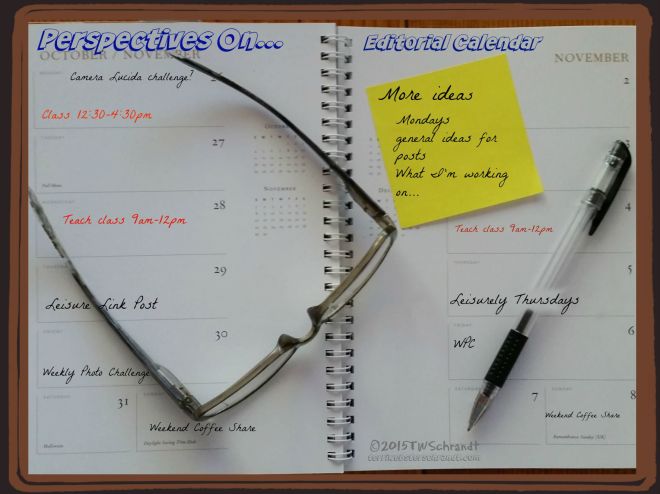 Perspectives On...
OCTOBER / NOVEMBER
Camera Lucida challenge?
Class 12:30-4:30pm
27
Full Moon
28
Teach class 9am-12pm
29
Leisure Link Post
30
Weekly Photo Challenge
31
Halloween
Weekend Coffee Share
Daylight Saving Time Ends
November
Editorial Calendar
NOVEMBER
2
More ideas
Mondays
general ideas for
posts
What I'm working
on...
4
Teach class 9am-12pm
5
Leisurely Thursdays
6
WPC
7
8
Weekend Coffee Share
Remembrance Sunday (UK)
©2015TWSchrandt
terriwebsterschrandt.com